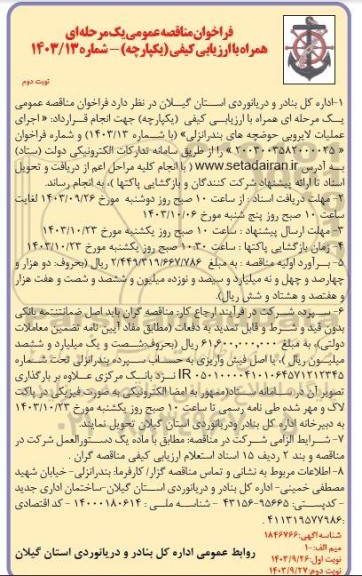 فراخوان مناقصه عمومی یک مرحله ای
همراه با ارزیابی کیفی (یکپارچه) – شماره ۱۴۰۳/۱۳
نوبت دوم
۱-اداره کل بنادر و دریانوردی استان گیـلان در نظر دارد فراخوان مناقصه عمومی
یـک مرحله ای همراه با ارزیابـی کیفـی (یکپارچه) جهت انجام قرارداد: « اجرای
عملیات لایروبی حوضچه های بندرانزلی» (با شماره ۱۴۰۳/۱۳) و شماره فراخوان
« ۲۰۰۳۰۰۳۵۸۲۰۰۰۰۲۵ » را از طریق سامانه تدارکات الکترونیکی دولت (ستاد)
به آدرس www.setadairan.ir ( با انجام کلیه مراحل اعم از دریافت و تحویل
اسناد تا ارائه پیشنهاد شرکت کنندگان و بازگشایی پاکتها )، به انجام رساند.
۲- مهلت دریافت اسناد : از ساعت ۱۰ صبح روز دوشنبه مورخ ۱۴۰۳/۰۹/۲۶ لغایت
ساعت ۱۰ صبح روز پنج شنبه مورخ ۱۴۰۳/۱۰/۰۶
۳- مهلت ارسال پیشنهاد : ساعت ۱۰ صبح روز یکشنبه مورخ ۱۴۰۳/۱۰/۲۳
۴- زمان بازگشایی پاکتها : ساعت ۱۰:۳۰ صبح روز یکشنبه مورخ ۱۴۰۳/۱۰/۲۳
۵- بـرآورد اولیه مناقصه : به مبلغ ۲/۴۴۹/۳۱۹/۶۶۷/۷۸۶ ریال (بحروف: دو هزار و
چهارصد و چهل و نه میلیارد و سیصد و نوزده میلیون و ششصد و شصت و هفت هزار
و هفتصد و هشتاد و شش ریال).
۶- سپرده شرکت در فرآیند ارجاع کار: مناقصه گران باید اصل ضمانتنامه بانکی
بدون قید و شرط و قابل تمدید به دفعات (مطابق مفاد آیین نامه تضمین معاملات
دولتی)، به مبلغ ۶۱,۶۰۰,۰۰۰,۰۰۰ ریال (بحروف:شصت و یک میلیارد و ششصد
میلیـون ریال )، یا اصل فیش واریزی به حساب سـپرده بندرانزلی تحت شماره
نزد بانک مرکزی علاوه بر بارگذاری
تصویر آن در سامانه ستاد(ممهور به امضا الکترونیکی به صورت فیزیکی در پاکت
لاک و مهر شده طی نامه رسمی تا ساعت ۱۰ صبح روز یکشنبه مورخ ۱۴۰۳/۱۰/۲۳
به دبیرخانه اداره کل بنادر ودریانوردی استان گیلان تحویل نمایند.
۷- شرایط الزامی شرکت در مناقصه: مطابق با ماده یک دستورالعمل شرکت در
مناقصه و بند ۲ ردیف ۱۵ اسناد استعلام ارزیابی کیفی مناقصه گران .
۸- اطلاعات مربوط به نشانی و تماس مناقصه گزار/ کارفرما: بندرانزلی- خیابان شهید
مصطفی خمینی- اداره کل بنادر و دریانوردی استان گیلان-ساختمان اداری جدید
- کدپستی: ۹۵۶۶۵-۴۳۱۵۶ - شناسه ملی : ۱۴۰۰۰۱۸۰۶۱۴ - کد اقتصادی
: ۴۱۱۳۱۹۵۷۷۹۸۶ .
شناسه آگهی: ۱۸۴۶۷۶۶
میم الف: ۱۰۰
نوبت اول: ۱۴۰۳/۹/۲۶
نوبت دوم: ۱۴۰۳/۹/۲۷
روابط عمومی اداره کل بنادر و دریانوردی استان گیلان